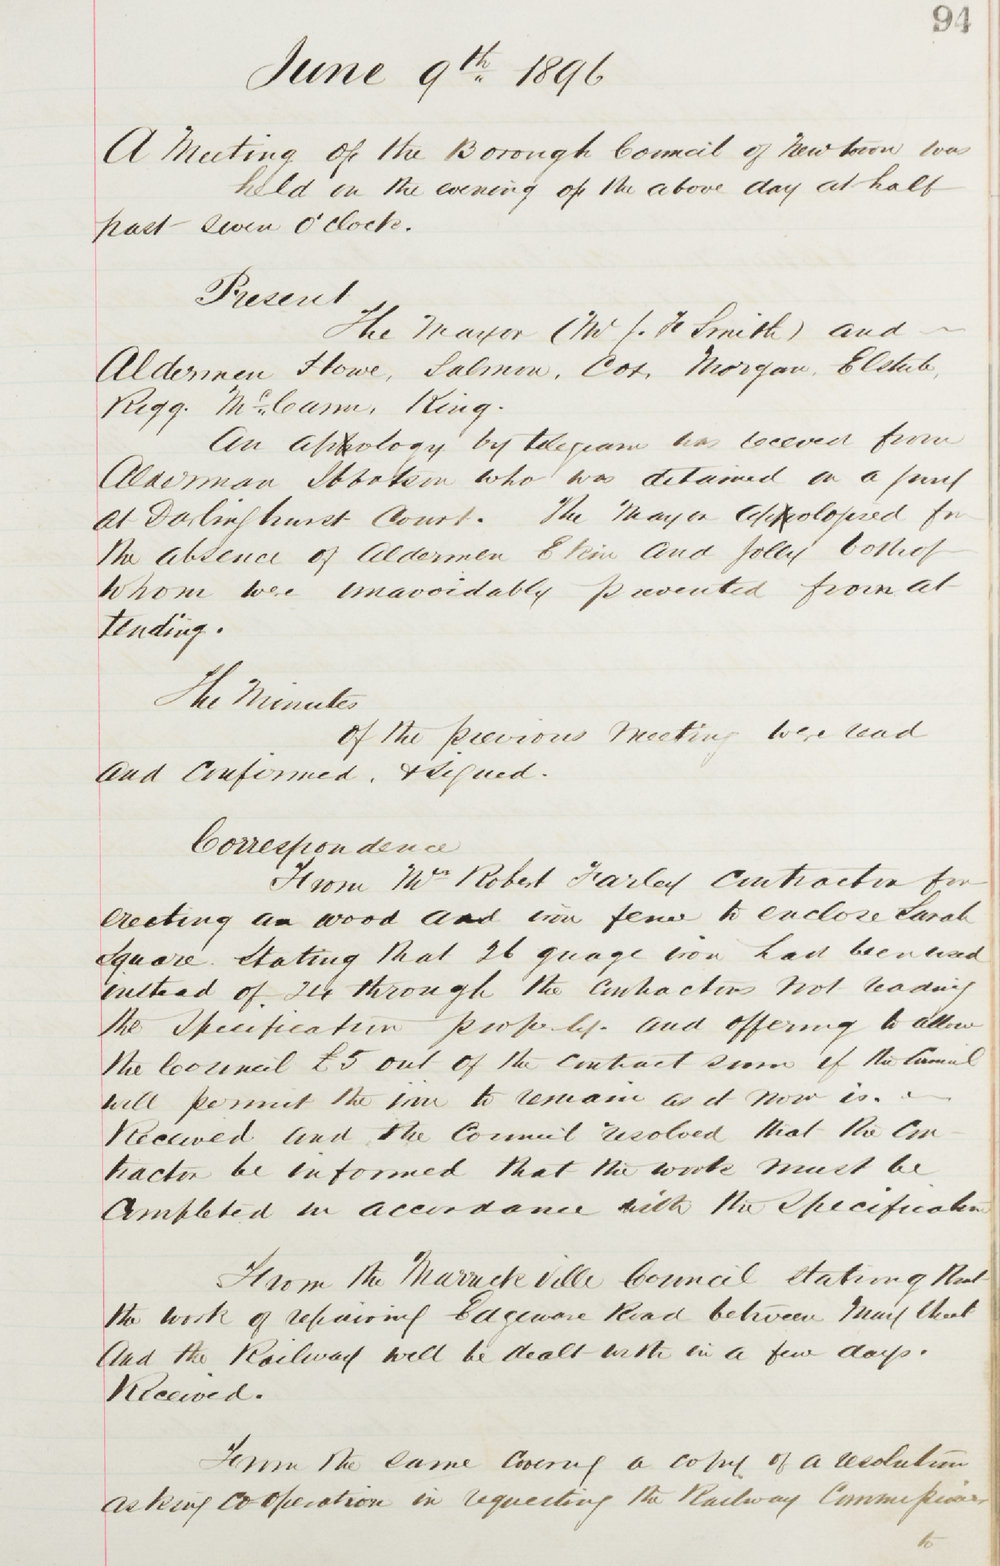 94
June 9th 1896
A Meeting of the Borough Council of Newtown was
held on the evening of the above day at half
past seven O'clock.
Present
The Mayor (Mr J. F Smith) and
Aldermen Howe, Salmon, Cox, Morgan, Elstub,
Rigg. McCann, King.
An apology by telegram was received from
Alderman Ibbotson who was detained on a jury
at Darlinghurst Court. The Mayor apologised for
the absence of Aldermen Elkin and Jolly both of
whom were unavoidably prevented from at
tending.
The Minutes
of the previous meeting were read
and confirmed, & signed.
Correspondence
From Mr Robert Farley Contractor for
erecting a wood and iron fence to enclose Sarah
Square. Stating that 26 guage iron had been used
instead of 24 through the contractors not reading
the Specification properly. and offering to allow
the Council £5 out of the contract sum if the Council
will permit the iron to remain as it now is.
Received and the Council resolved that the Con-
tractor be informed that the work must be
Completed in accordance with the Specification
From the Marrickville Council stating that
the work of repairing Edgeware Road between May Street
And the Railway will be dealt with in a few days.
Received.
From the same covering a copy of a resolution
asking cooperation in requesting the Railway Commissioners
to